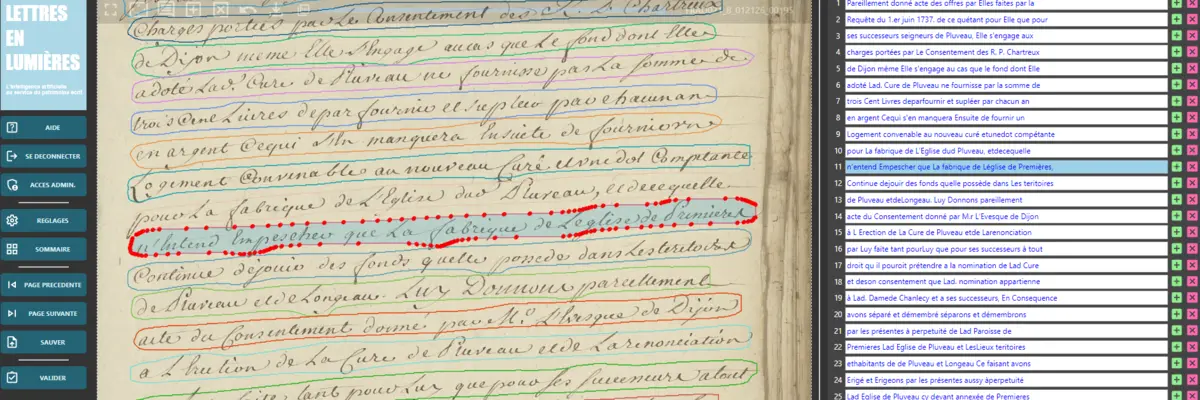 LETTRES
EN
LUMIÈRES
L'intelligence artificielle
au service du patrimoine écrit
AIDE
SE DECONNECTER
ACCES ADMIN.
REGLAGES
SOMMAIRE
PAGE PRECEDENTE
PAGE SUIVANTE
SAUVER
VALIDER
Charges portées par le Consentement des R. P. Chartreux
de Dijon meme Elle s'Engage au cas que Le fond dont Elle
adoté Lad. Cure de Pluveau ne fournisse pas La somme de
trois Cent Livres depar fournir et supleer par chacun an
en argent Cequi s'en manquera Ensuite de fournir un
Logement Convenable au nouveau Curé, et une dot Comptante
pour La fabrique de L'Eglise dud Pluveau, et de cequelle
n'Entend Empescher que La fabrique de Leglise de Premieres
Continue dejouir des fonds quelle possede dans Les teritoires
de Pluveau et de Longeau. Luy Donnons pareillement
acte du Consentement donné par Mr. L'Evesque de Dijon
a L'Erection de La Cure de Pluveau et de La renonciation
par Luy faite tant pour Luy que pour ses successeurs atout
1 Pareillement donné acte des offres par Elles faites par la
2 Requête du 1.er juin 1737. de ce quétant pour Elle que pour
3 ses successeurs seigneurs de Pluveau, Elle s'engage aux
4 charges portées par Le Consentement des R. P. Chartreux
5 de Dijon même Elle s'engage au cas que le fond dont Elle
6 adoté Lad. Cure de Pluveau ne fournisse par la somme de
7 trois Cent Livres deparfournir et supléer par chacun an
8 en argent Cequi s'en manquera Ensuite de fournir un
9 Logement convenable au nouveau curé etunedot compétante
10 pour La fabrique de L'Eglise dud Pluveau, etdecequelle
11 n'entend Empescher que La fabrique de Léglise de Premières,
12 Continue dejouir des fonds quelle possède dans Les teritoires
13 de Pluveau etdeLongeau. Luy Donnons pareillement
14 acte du Consentement donné par M.r L'Evesque de Dijon
15 à L Erection de La Cure de Pluveau etde Larenonciation
16 par Luy faite tant pourLuy que pour ses successeurs à tout
17 droit qu il pouroit prétendre a la nomination de Lad Cure
18 et deson consentement que Lad. nomination appartienne
19 à Lad. Damede Chanlecy et a ses successeurs, En Consequence
20 avons séparé et démembré séparons et démembrons
21 par les présentes à perpetuité de Lad Paroisse de
22 Premieres Lad Eglise de Pluveau et LesLieux teritoires
23 ethabitants de de Pluveau et Longeau Ce faisant avons
24 Erigé et Erigeons par les présentes aussy àperpetuité
25 Lad Eglise de Pluveau cy devant annexée de Premieres